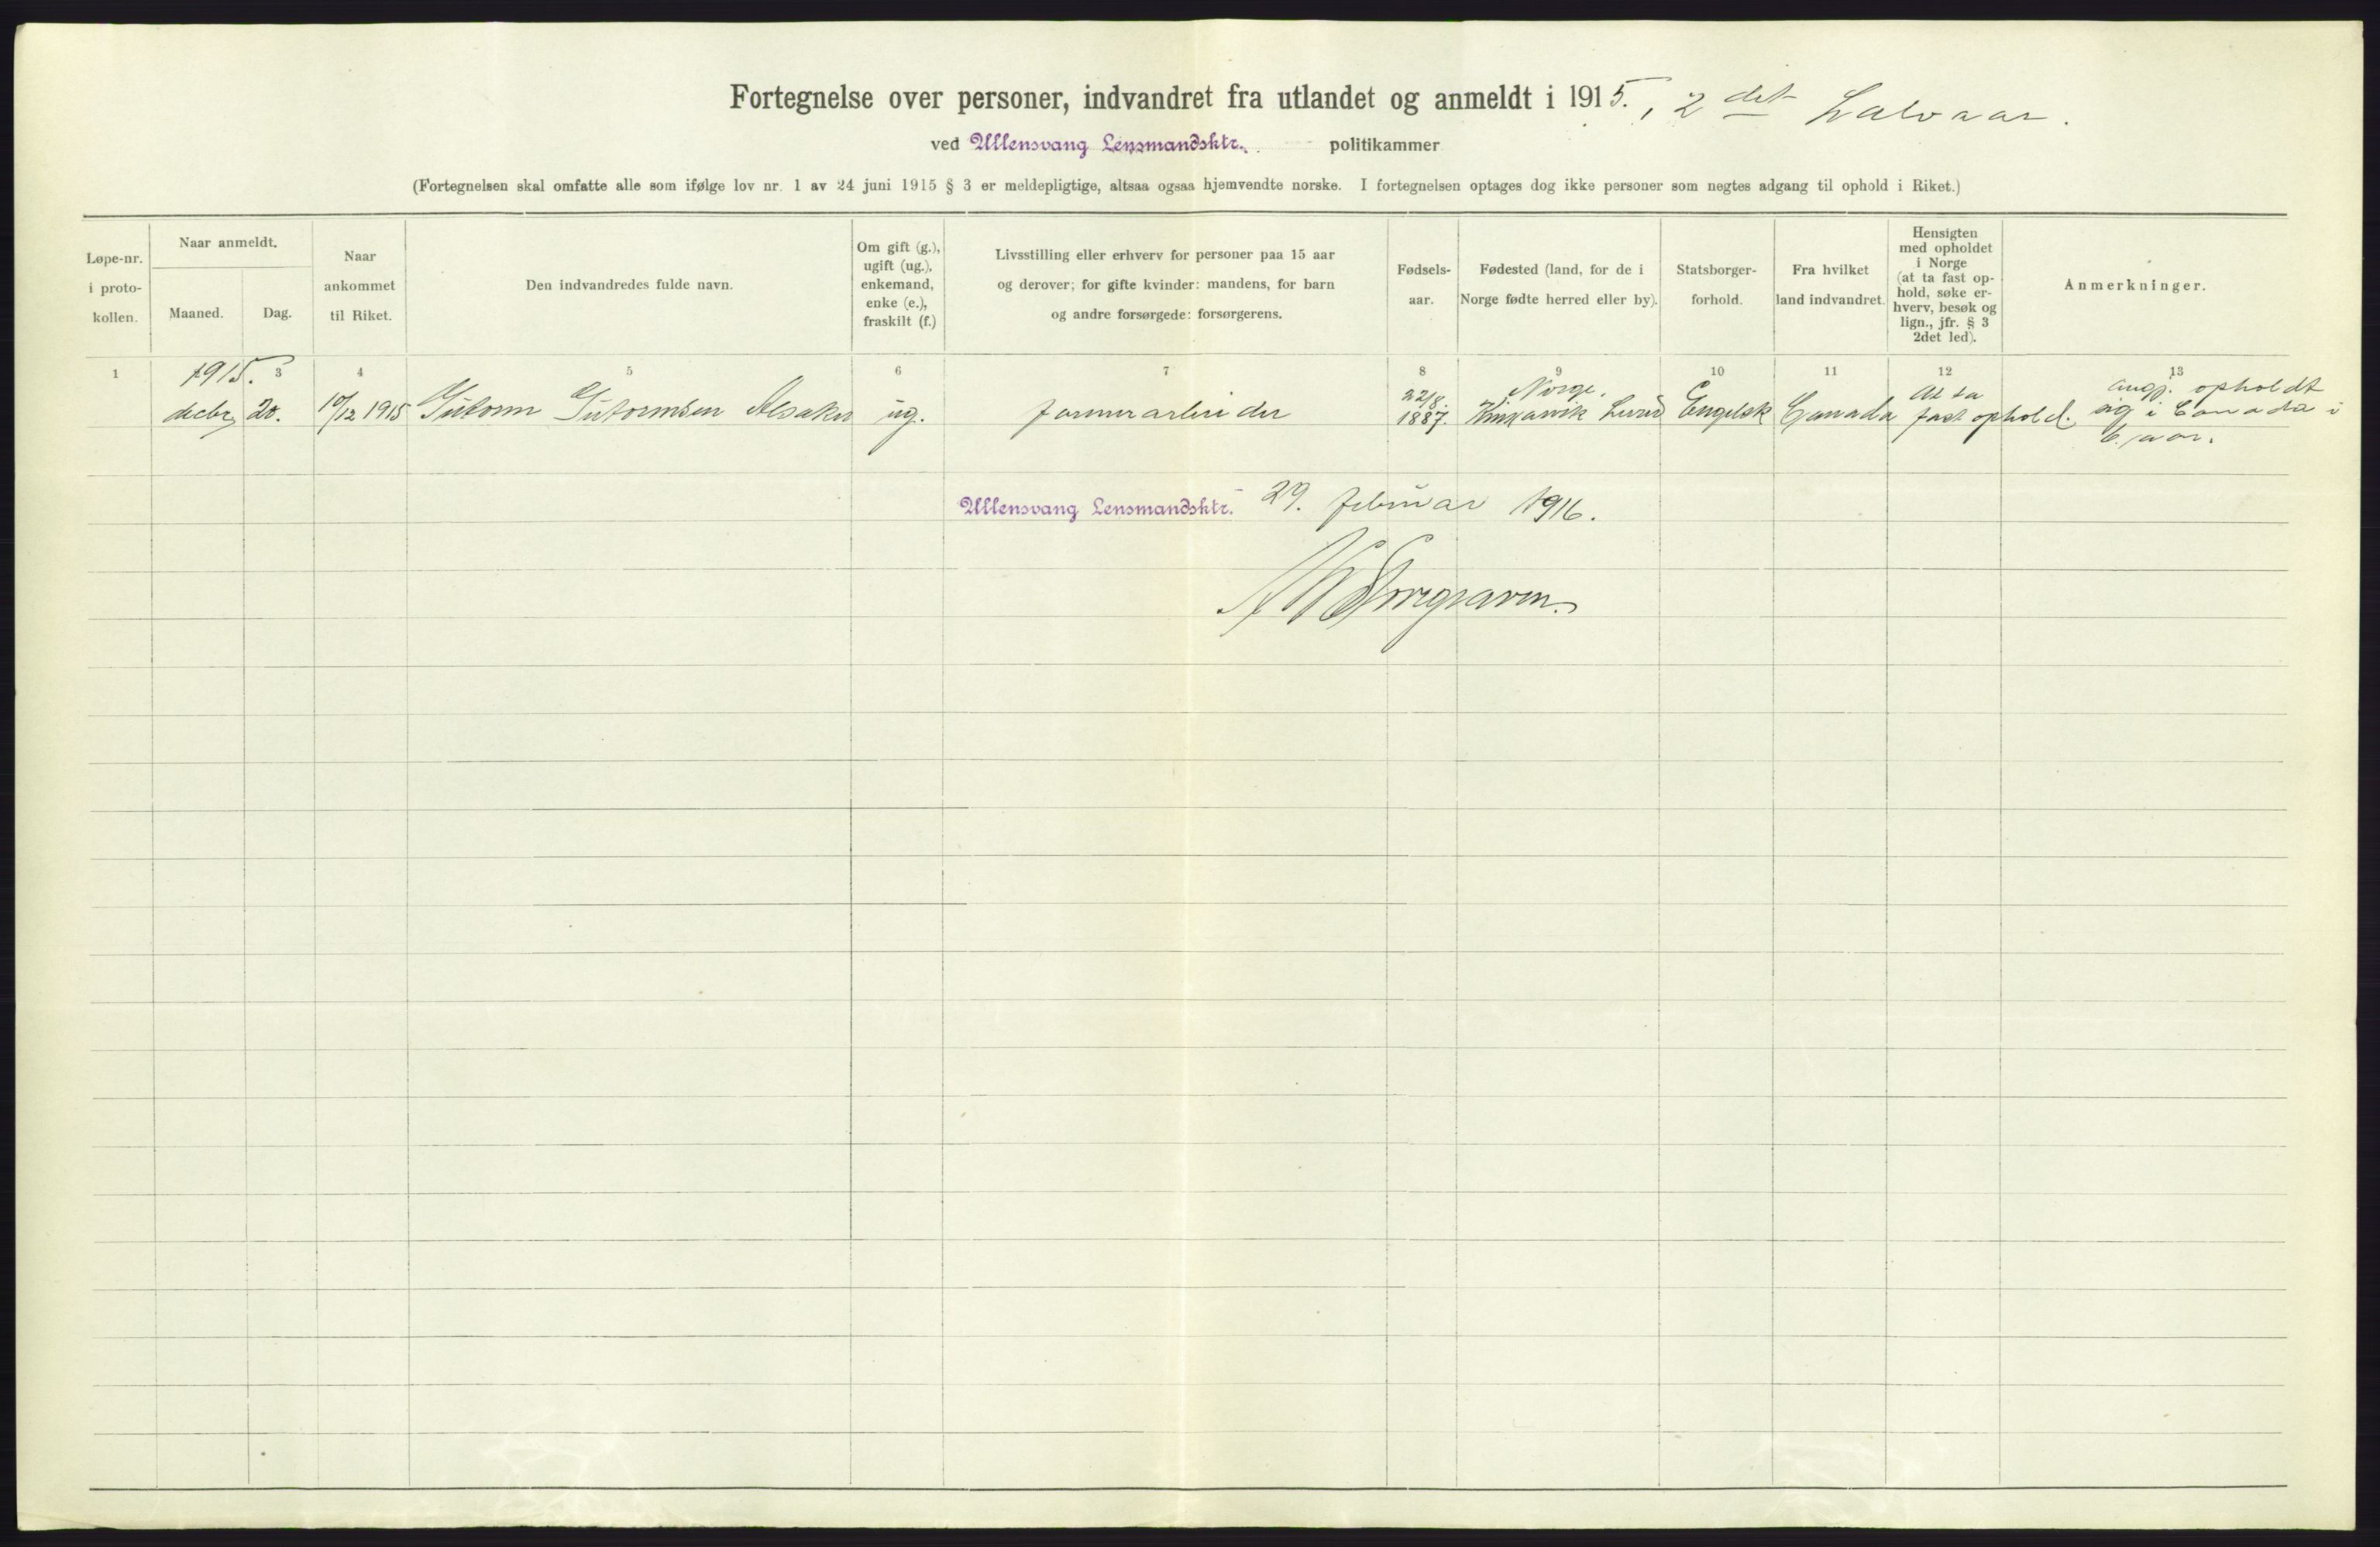 Fortegnelse over personer, indvandret fra utlandet og anmeldt i 1915., 2det Halvaar.
ved Ullensvang Lensmandsktr. politikammer
(Fortegnelsen skal omfatte alle som ifølge lov nr. 1 av 24 juni 1915 § 3 er meldepligtige, altsaa ogsaa hjemvendte norske. I fortegnelsen optages dog ikke personer som negtes adgang til ophold i Riket.)
Løpe-nr.
i proto-
kollen.
Naar anmeldt.
Maaned.
Dag.
Naar
ankommet
til Riket.
Den indvandredes fulde navn.
Om gift (g.),
ugift (ug.),
enkemand,
enke (e.),
fraskilt (f.)
Livsstilling eller erhverv for personer paa 15 aar
og derover; for gifte kvinder: mandens, for barn
og andre forsørgede: forsørgerens.
Fødsels-
aar.
Fødested (land, for de i
Norge fødte herred eller by).
Statsborger-
forhold.
Fra hvilket
land indvandret.
Hensigten
med opholdet
i Norge
(at ta fast op-
hold, søke er-
hverv, besøk og
lign., jfr. § 3
2det led).
Anmerkninger.
1 3 4 5 6 7 8 9 10 11 12 13
1915.
decbr. 20.
10/12 1915
Gutorm Gutormsen Alsaker
ug.
farmerarbeider
22/8.
1887.
Norge.
Kinsarvik
Engelsk
Canada
At ta
fast ophold.
opholdt
sig i Canada i
6 aar.
Ullensvang Lensmandsktr. 29. februar 1916.